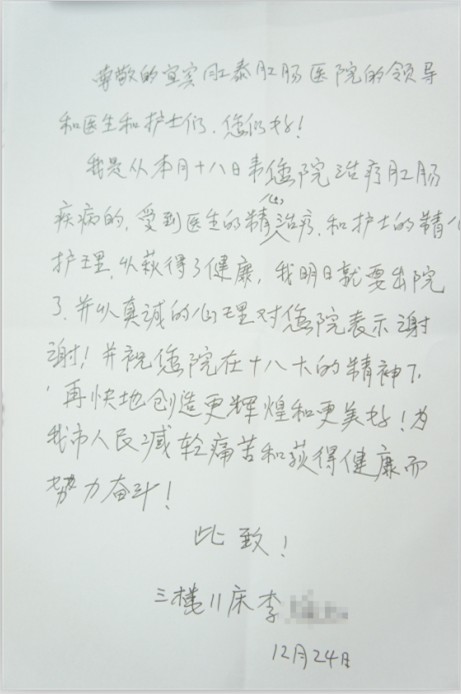 尊敬的宜宾肛泰肛肠医院的领导
和医生和护士们，您们好！
我是从本月十八日来您院治疗肛肠
疾病的，受到医生的精心治疗，和护士的精心
护理，从获得了健康，我明日就要出院
了，并从真诚的心理对您院表示谢
谢！并祝您院在十八大的精神下，
再快地创造更辉煌和更美好！为
我市人民减轻痛苦和获得健康而
努力奋斗！
此致！
三楼11床李
12月24日